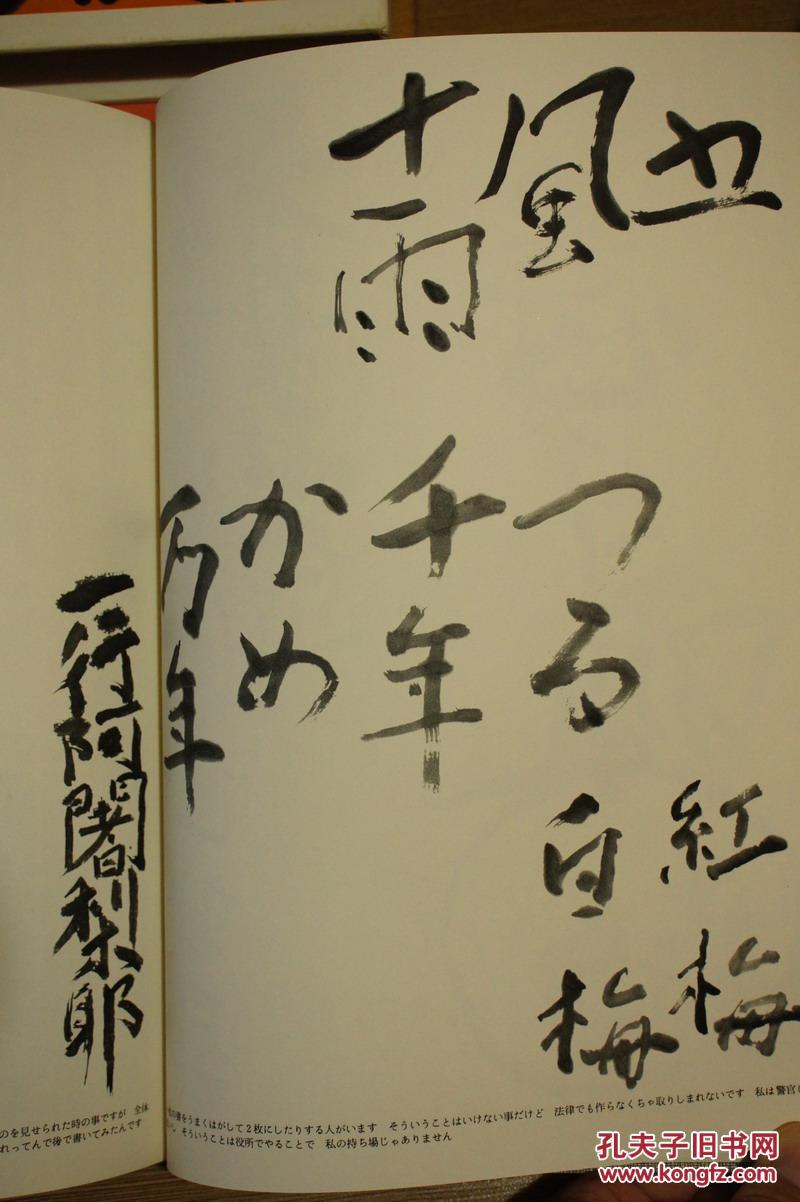 五風
十雨
つる
千年
かめ
万年
紅梅
白梅
の書をうまくはがして2枚にしたりする人がいます そういうことはいけない事だけど 法律でも作らなくちゃ取りしまれないです 私は警官
そういうことは役所でやることで 私の持ち場じゃありません
一行阿闍梨耶
のを見せられた時の事ですが 全体
れってんで後で書いてみたんです
孔夫子旧书网
www.kongfz.com